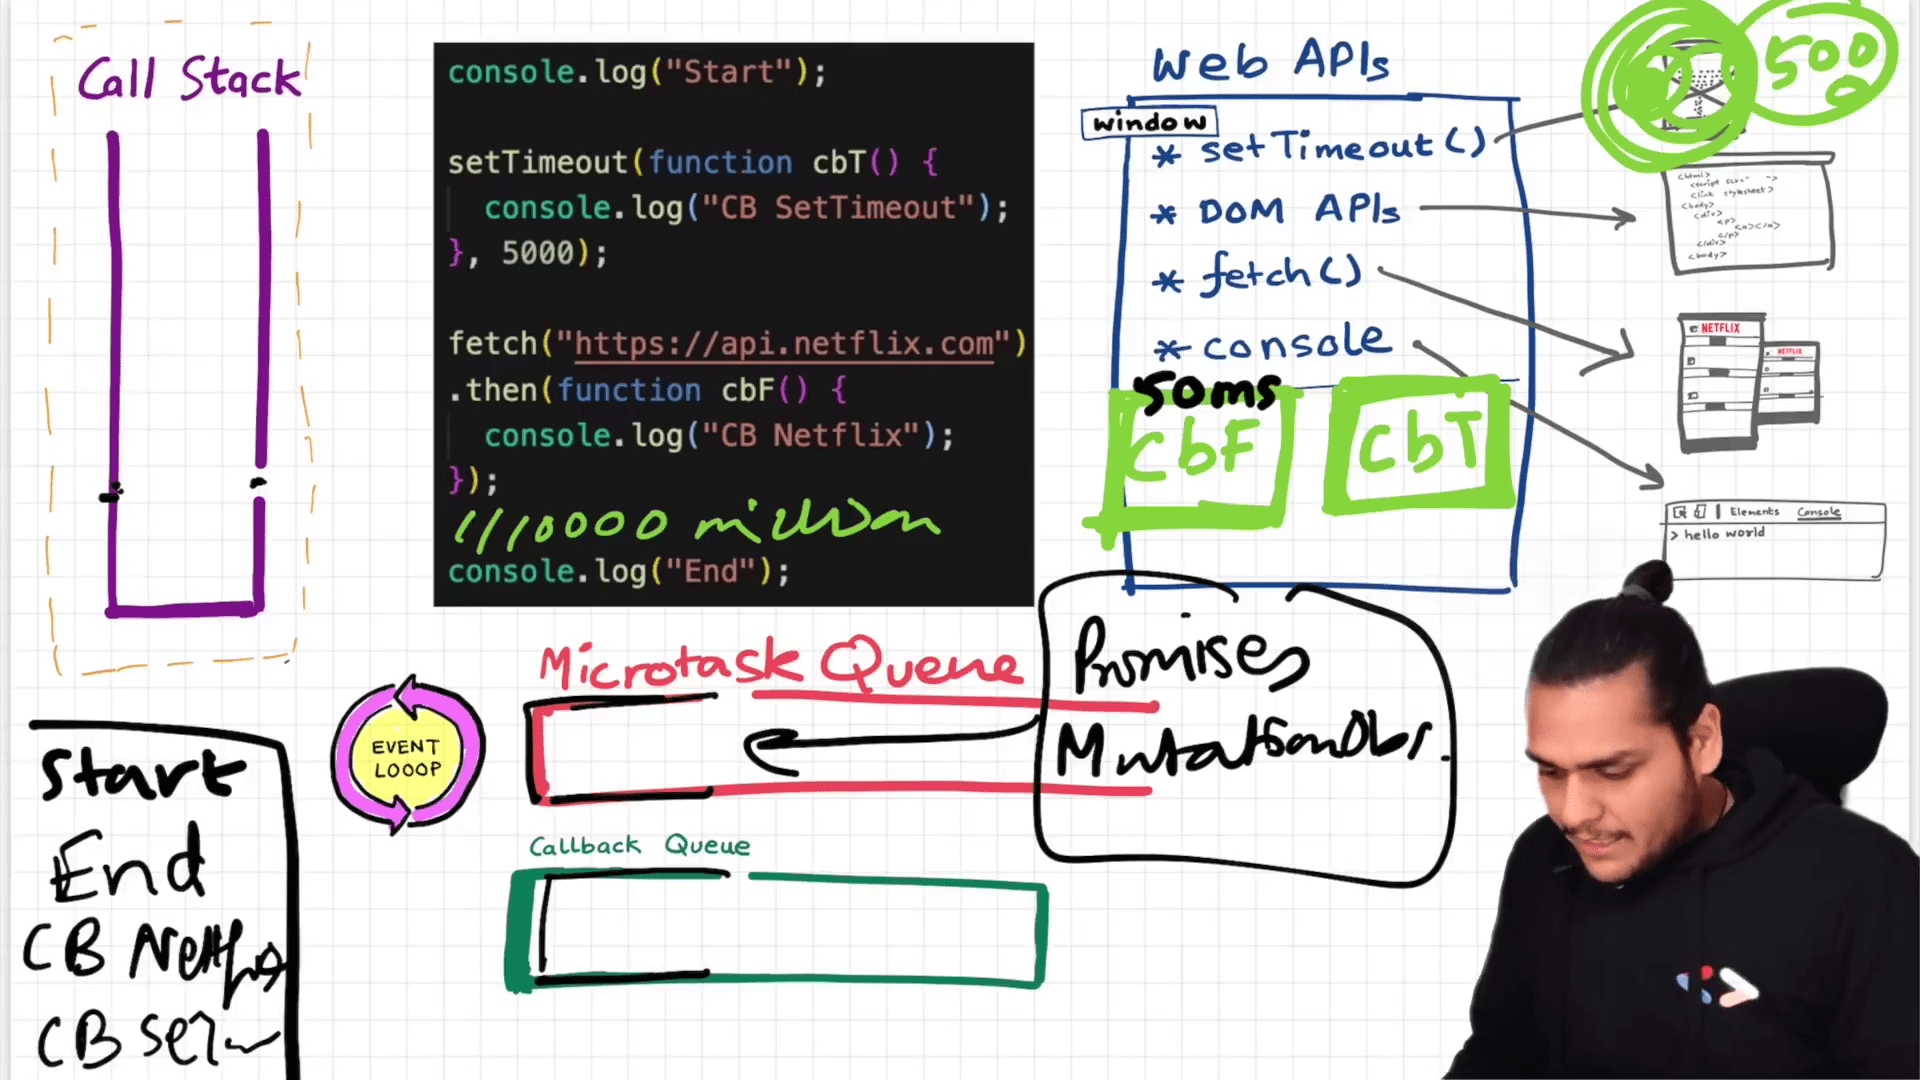 Call Stack
console.log("Start");
setTimeout(function cbT() {
console.log("CB SetTimeout");
}, 5000);
fetch("https://api.netflix.com")
.then(function cbF() {
console.log("CB Netflix");
});
10000 million
console.log("End");
Web APIs
window
* setTimeout()
* DOM APIs
* fetch()
* console
50ms
CbF
CbT
5000
<html>
<body>
<div>
<p>
<a></a>
</p>
</div>
<body>
NETFLIX
NETFLIX
Elements Console
> hello world
Microtask Queue
Promises
EVENT
LOOOP
Callback Queue
Start
End
CB Netflix
CB